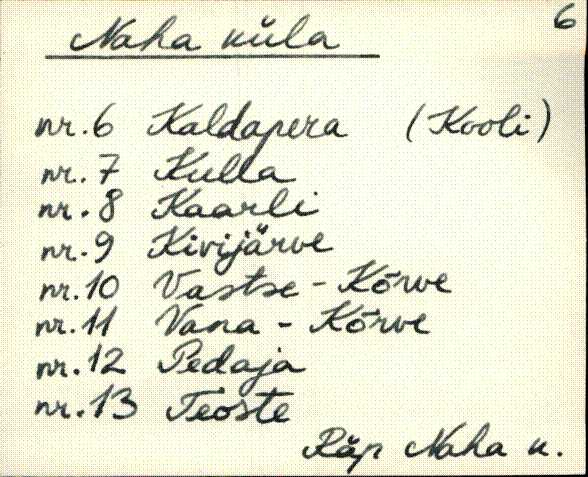 6
Naha küla
nr.6 Kaldapera (Kooli)
nr.7 Kulla
nr.8 Kaarli
nr.9 Kivijärve
nr.10 Vastse-Kõrve
nr.11 Vana-Kõrve
nr.12 Pedaja
nr.13 Teoste
Räp Naha k.